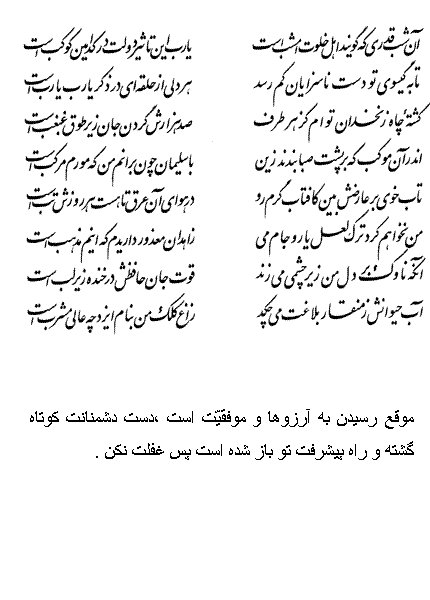 آن شب قدری که گویند اهل خلوت امشب است یارب این تاثیر دولت در کدامین کوکب است
تا به گیسوی تو دست ناسزایان کم رسد هر دلی از حلقه‌ای در ذکر یارب یارب است
کشتهٔ چاه زنخدان توام کز هر طرف صد هزارش گردن جان زیر طوق غبغب است
اندر آن موکب که بر پشت صبا بندند زین با سلیمان چون برانم من که مورم مرکب است
تاب خوی بر عارضش بین کافتاب گرم رو در هوای آن عرق تا هست هر روزش تب است
من نخواهم کرد ترک لعل یار و جام می زاهدان معذور داریدم که اینم مذهب است
آنکه ناوک بر دل من زیر چشمی می زند قوت جان حافظش در خنده زیر لب است
آب حیوانش ز منقار بلاغت می چکد زاغ کلک من بنام ایزد چه عالی مشرب است
موقع رسیدن به آرزوها و موفقیّت است ،دست دشمنانت کوتاه
گشته و راه پیشرفت تو باز شده است پس غفلت نکن .